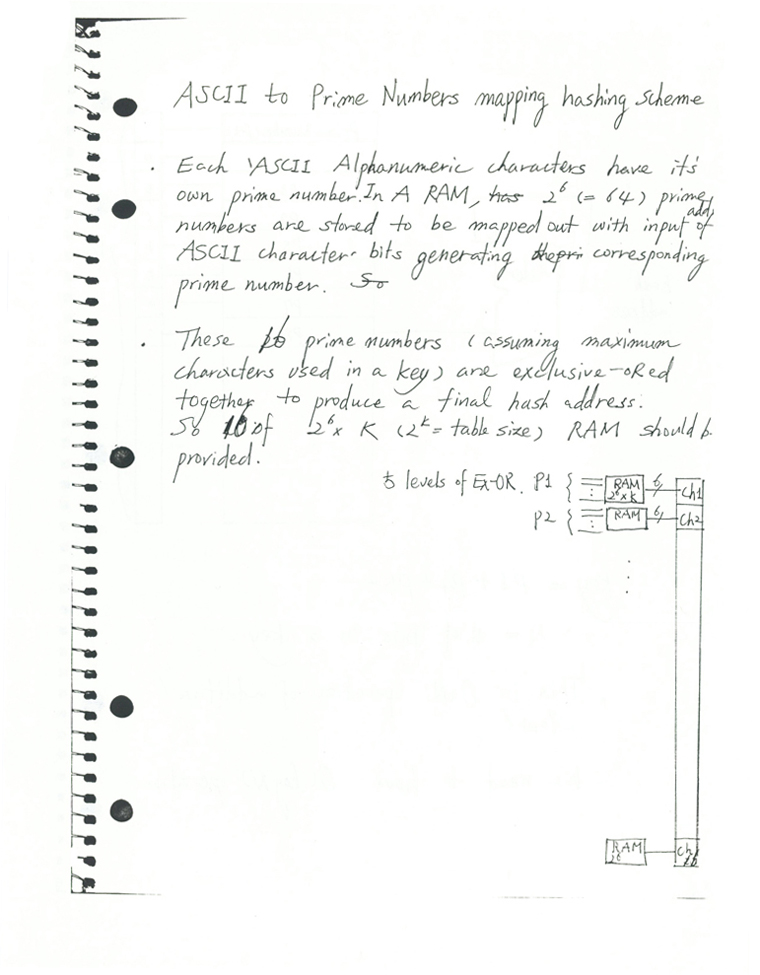 ASCII to Prime Numbers mapping hashing scheme
· Each ASCII Alphanumeric characters have it's
own prime number. In A RAM, has 2^6 (= 64) prime
numbers are stored to be mapped out with input add. of
ASCII character bits generating the pri corresponding
prime number. So
· These 16 prime numbers (assuming maximum
characters used in a key) are exclusive-oRed
together to produce a final hash address.
So 16 of 2^6 x K (2^k = table size) RAM should b.
provided.
5 levels of Ex-OR. P1 { RAM 2^6 x K 6 Ch1
P2 { RAM 6 Ch2
RAM 16 Ch 16